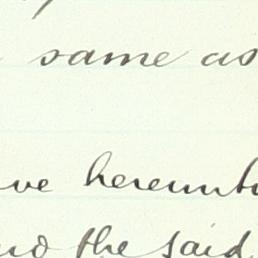 same as
hereunto
the said